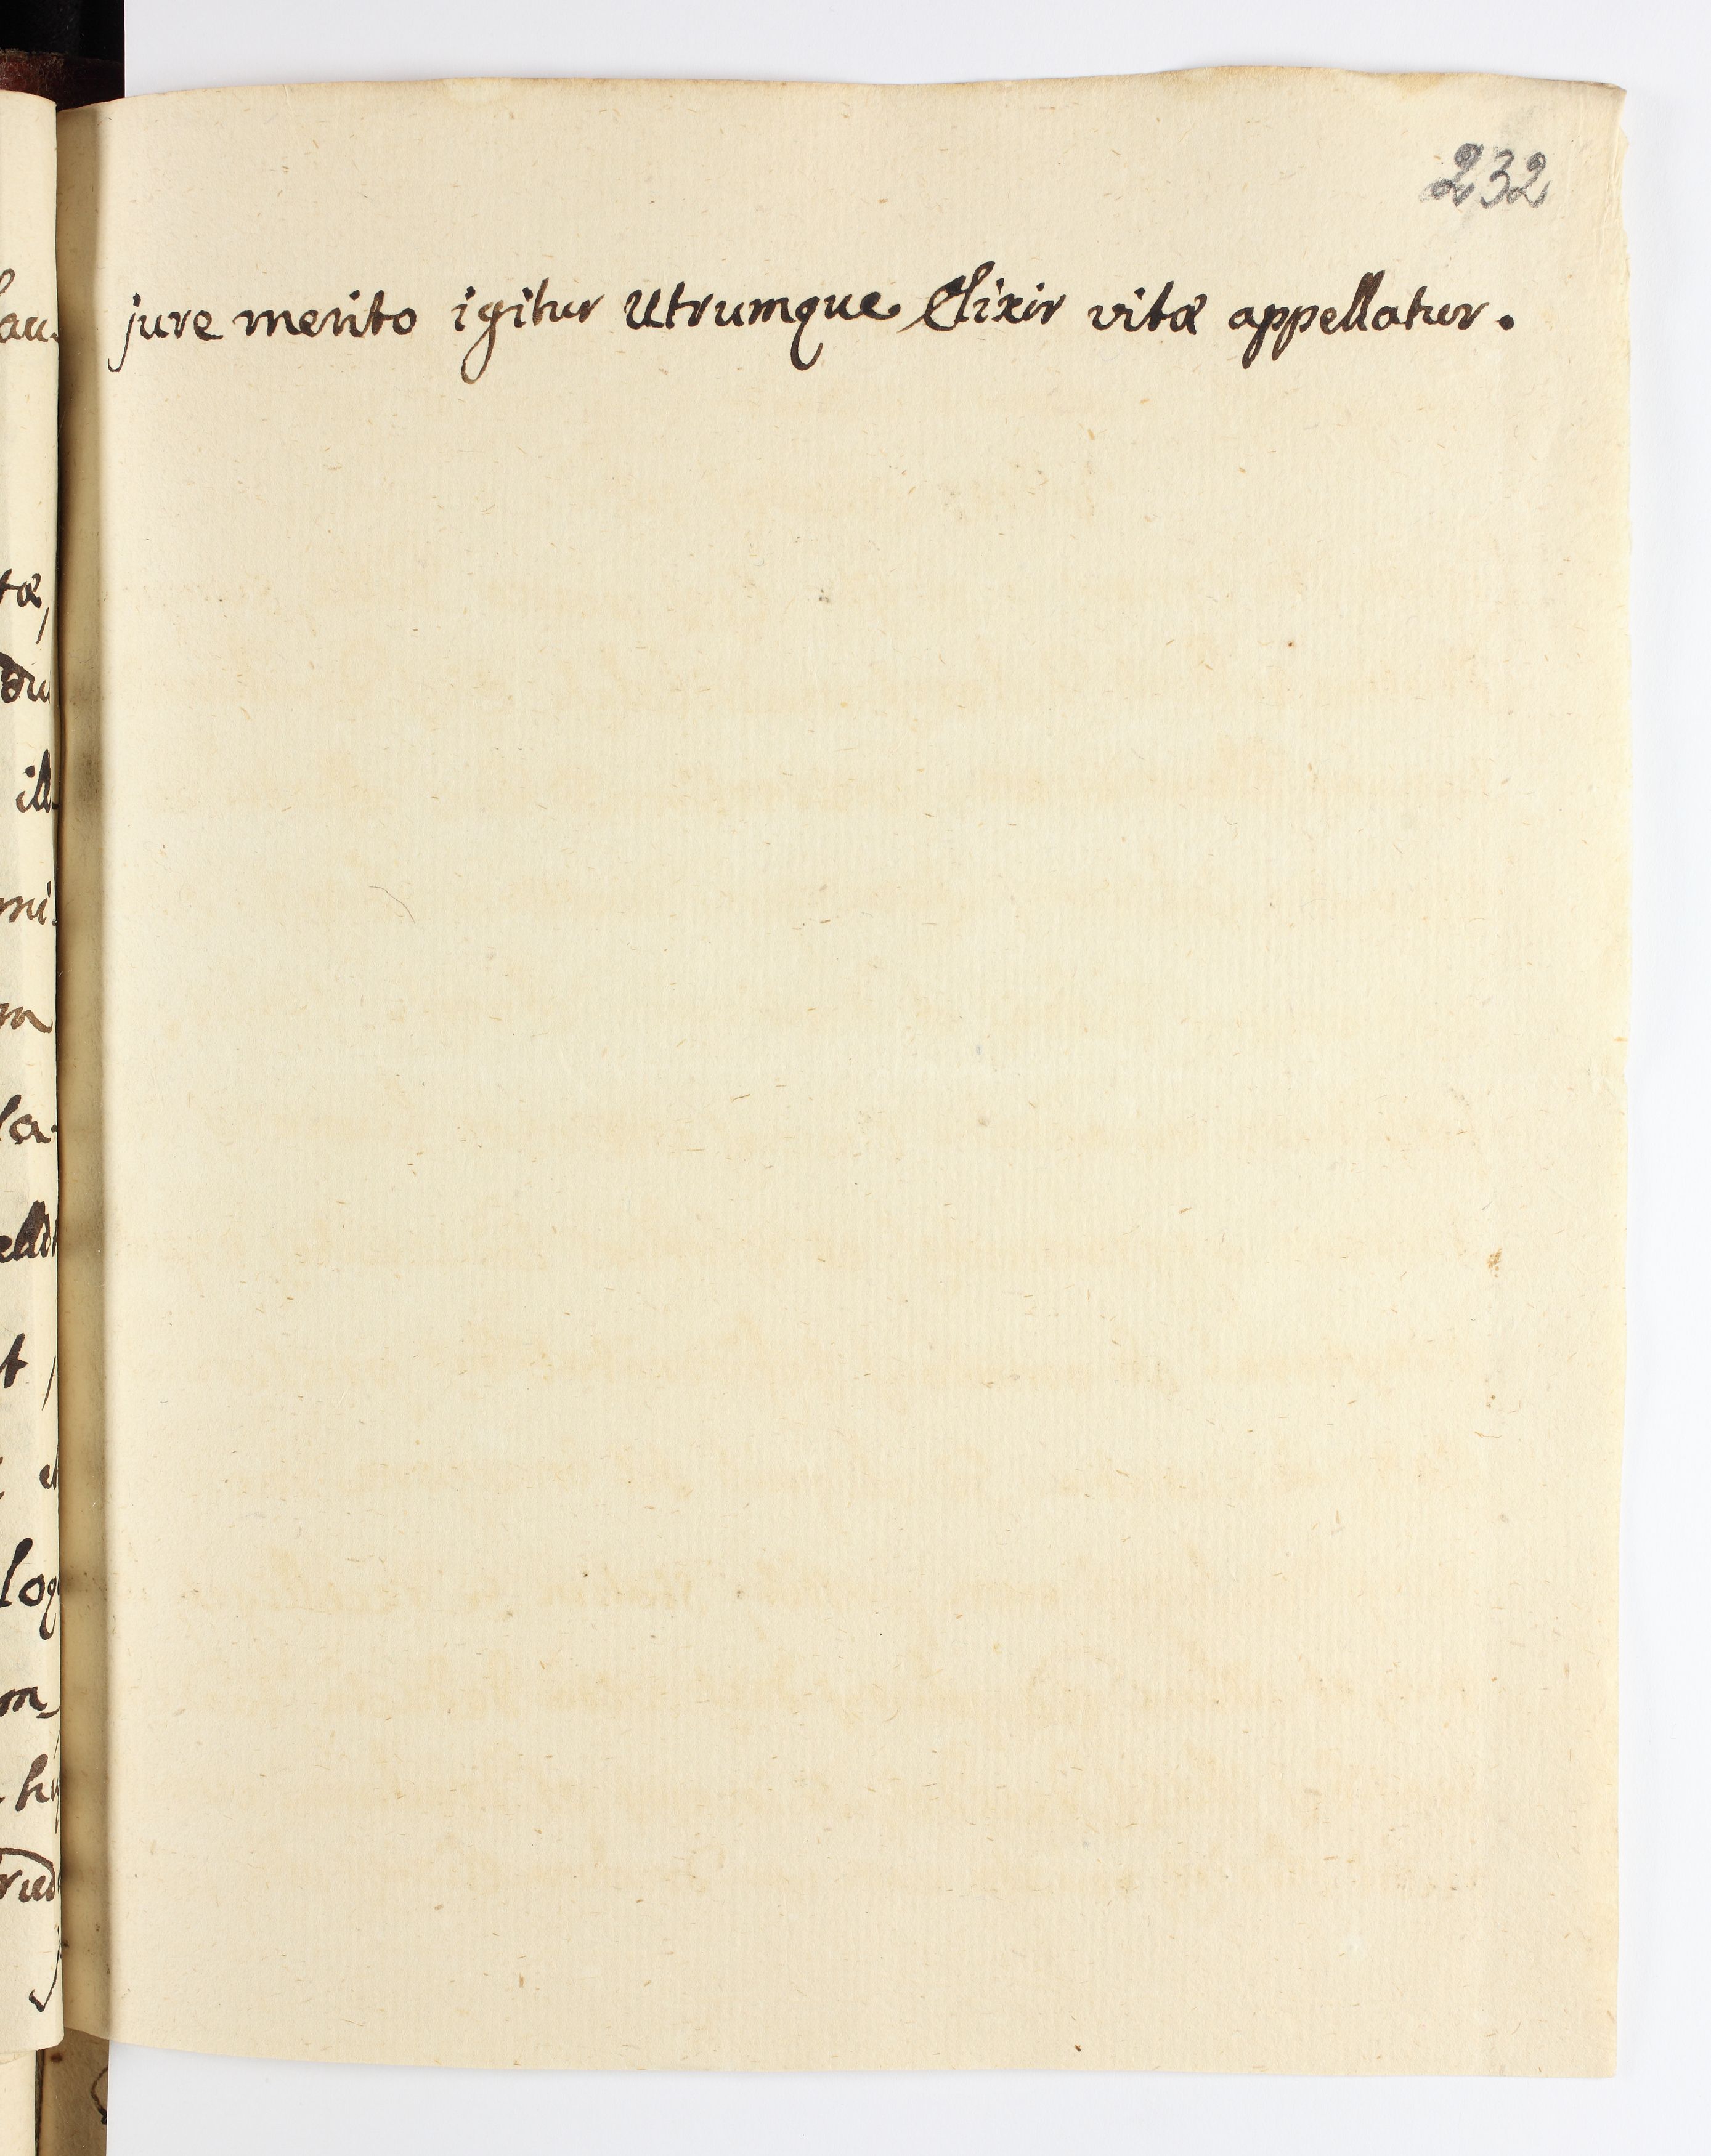 232
jure merito igitur Utrumque Elixir vitæ appellatur.